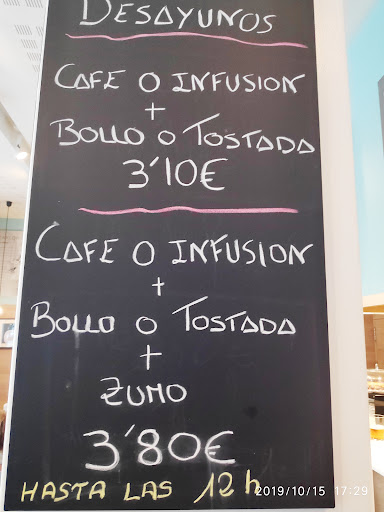 DESAYUNOS
CAFE O INFUSION
+
BOLLO O TOSTADA
3'10€
CAFE O INFUSION
+
BOLLO O TOSTADA
+
ZUMO
3'80€
HASTA LAS 12h
2019/10/15 17:29